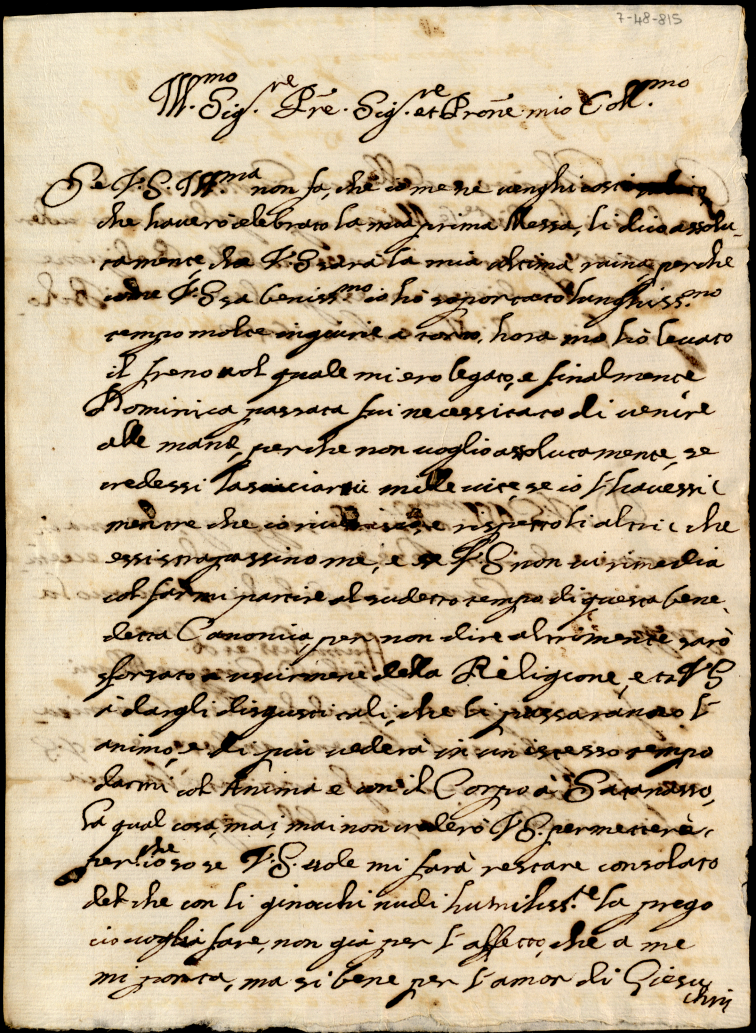 7-48-815
Ill.mo Sig.re Pre. Sig.re et Prone mio Coll.mo
Se V.S. Ill.ma non fa, che io me ne venghi costì
che haverò celebrato la mia prima Messa, li dico assolu-
tamente, che V.S. sarà la mia ultima raina, perche
come V.S. sa beniss.mo io hò soportato longhiss.mo
tempo molte ingiurie a torto, hora mo hò levato
il freno col quale mi ero legato, e finalmente
Dominica passata fui necessitato di venire
alle mane, perche non voglio assolutamente, se
credessi lasciarci mille vite, se io l'havessi
mentre che io riverisco, e rispetto li altri, che
essi strapassino me, e se V.S. non vi rimedia
col farmi partire al sudetto tempo di questa bene-
detta Canonica, per non dire altrimente sarò
sforsato a uscirmene della Religione, et a V.S.
à dargli disgusti tali, che li passaranno l'
animo, e di più vederà in un istesso tempo
darmi col Anima e con il Corpo à Satanasso,
la qual cosa, mai, mai non crederò V.S. permetterè
perche io so se V.S. vole mi farà restare consolato
del che con li ginocchi nudi humiliss.te la prego
ciò voglia fare, non già per l'affetto, che a me
mi porta, ma si bene per l'amor di Giesu
chri